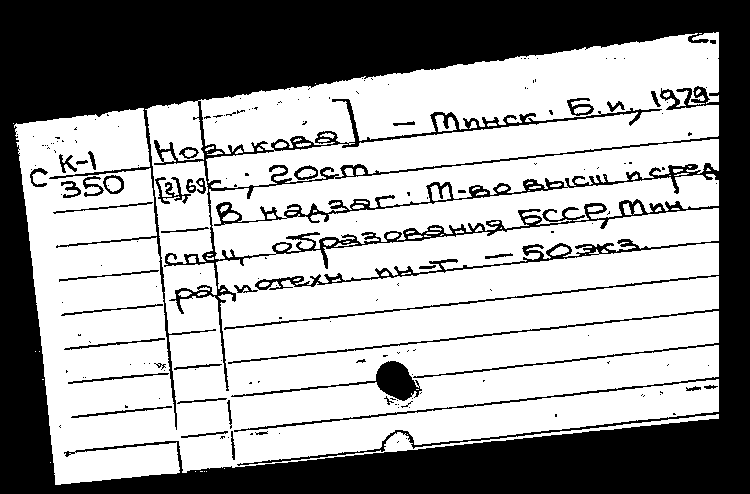 с.
Новикова]. – Минск : Б.и., 1979–
С К-1
350
[2],69 с. ; 20 см.
В надзаг : М-во высш и сред
спец. образования БССР, Мин.
радиотехн. ин-т. – 50 экз.